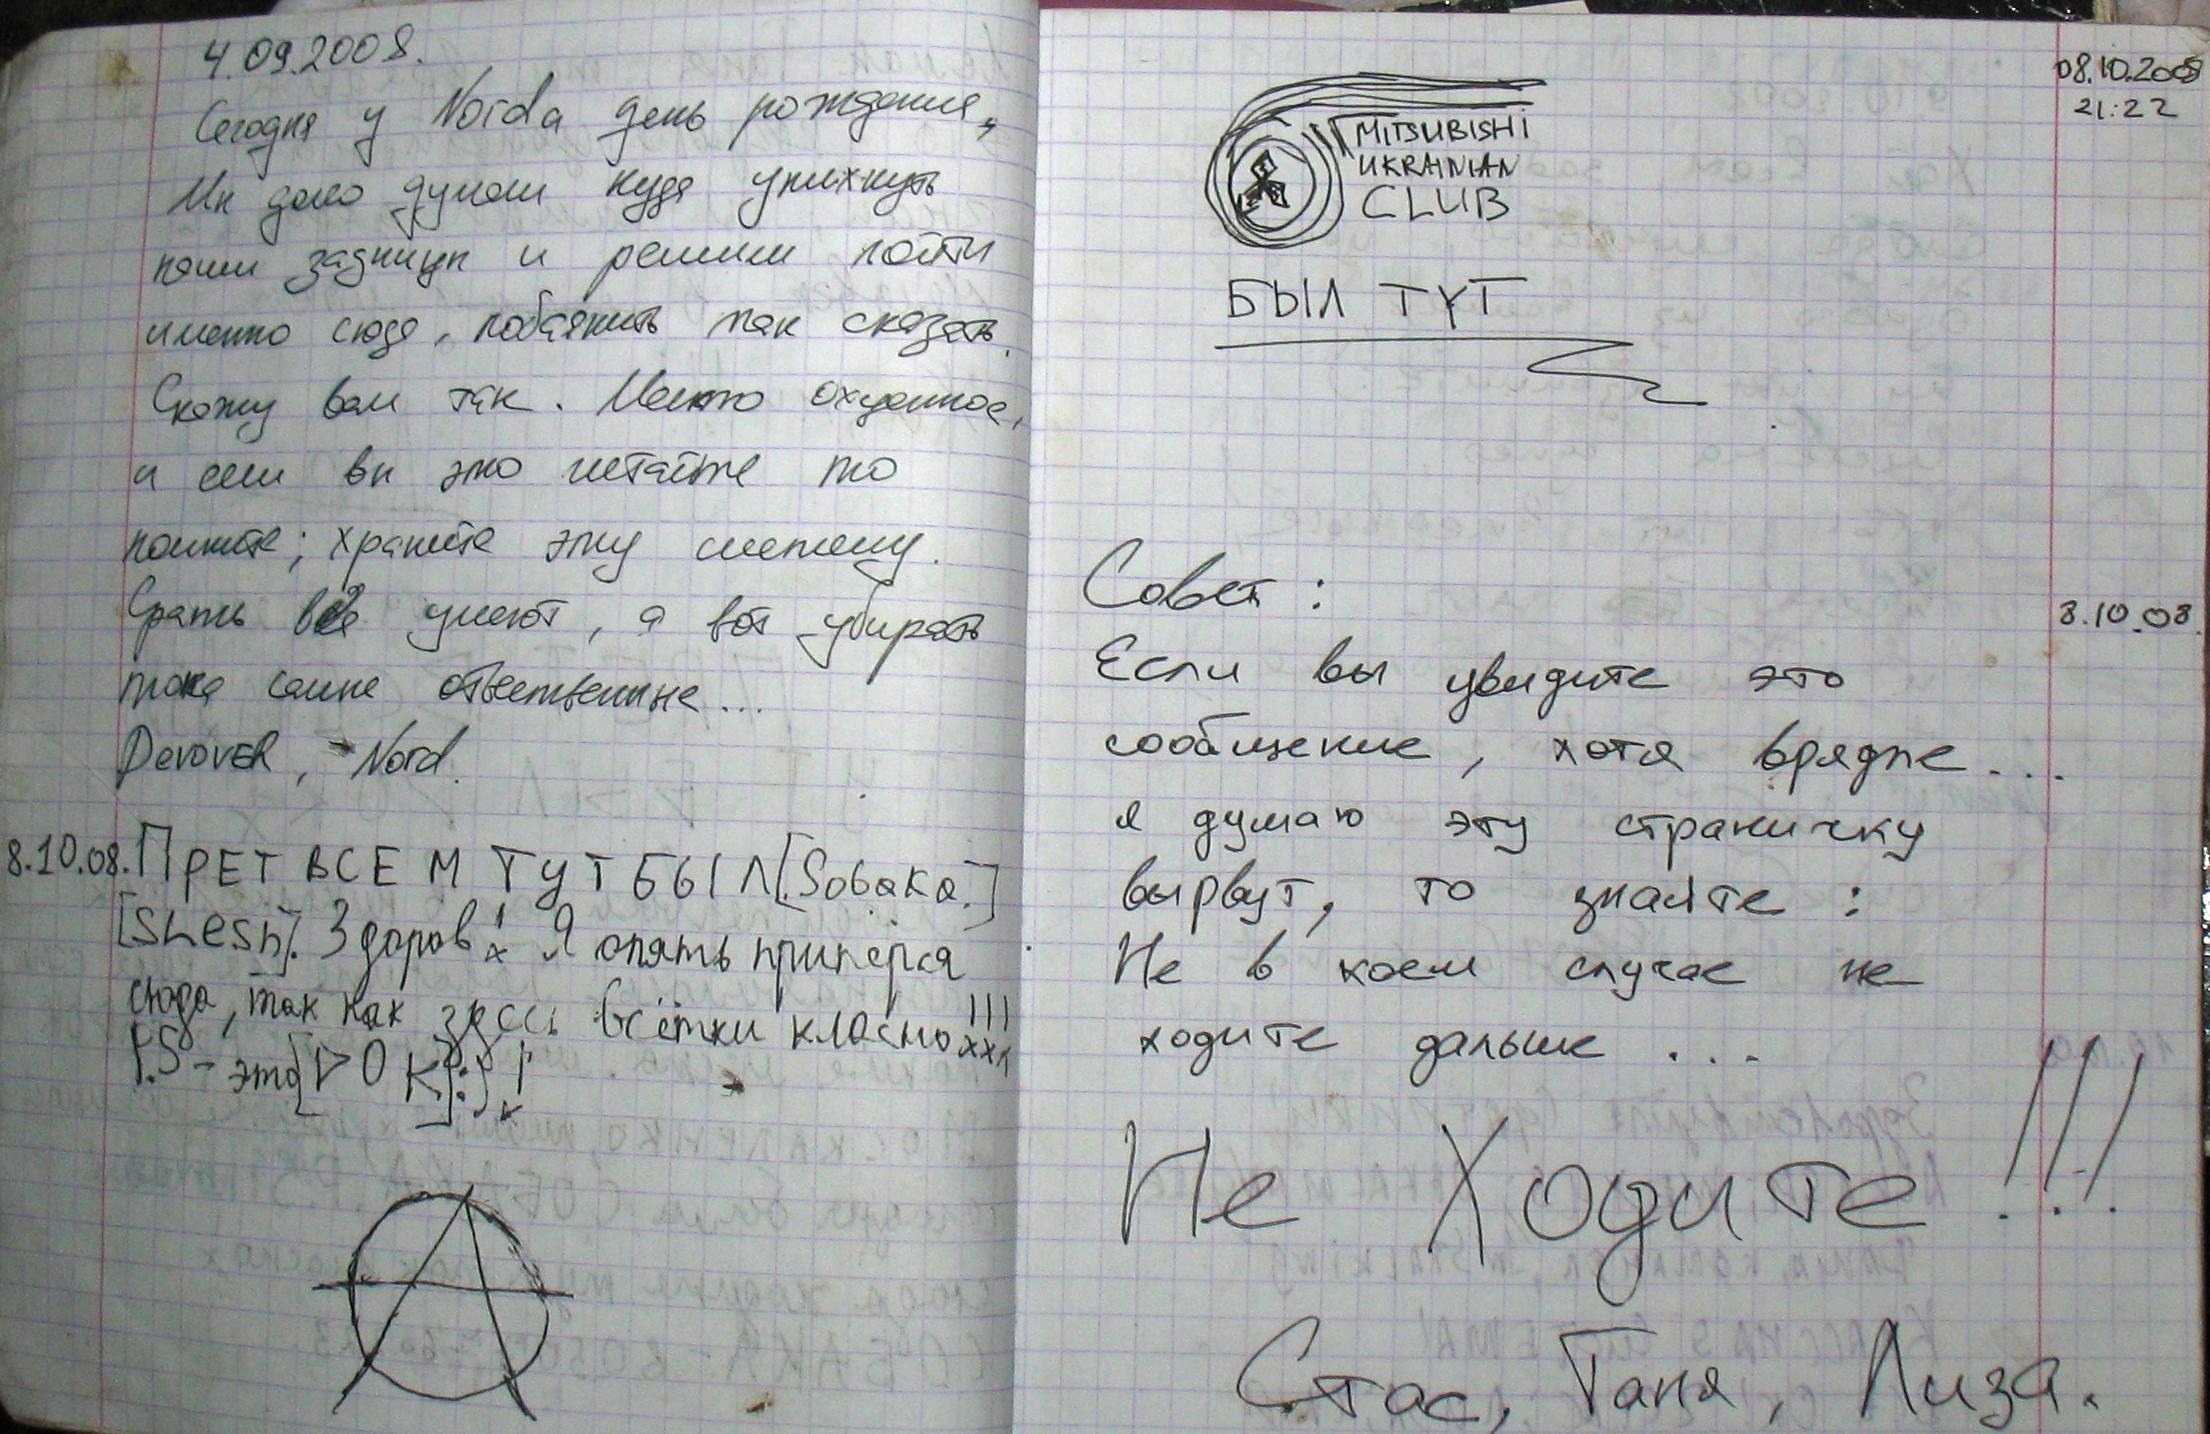 4.09.2008.
Сегодня у Norda день рождения,
Мы долго думали куда упихнуть
наши задницы и решили пойти
именно сюда, побаянить так сказать.
Скажу вам так. Место охуенное,
и если вы это читайте то
помните; храните эту систему.
Срать все умеют, а вот убирать
тока самые ответственные...
Devover, Nord.
8.10.08. ПРЕТ ВСЕМ ТУТ БЫЛ [Sobaka.]
[SLesh]. Здоров! Я опять припёрся
сюда, так как здесь всётки класно!!!
P.S - это [DOK]:)!
08.10.2008
21:22
MITSUBISHI
UKRAINIAN
CLUB
БЫЛ ТУТ
Совет:
8.10.08.
Если вы увидите это
сообщение, хотя врядле...
я думаю эту страничку
вырвут, то знайте:
Не в коем случае не
ходите дальше...
Не Ходите!!!
Стас, Таня, Лиза.